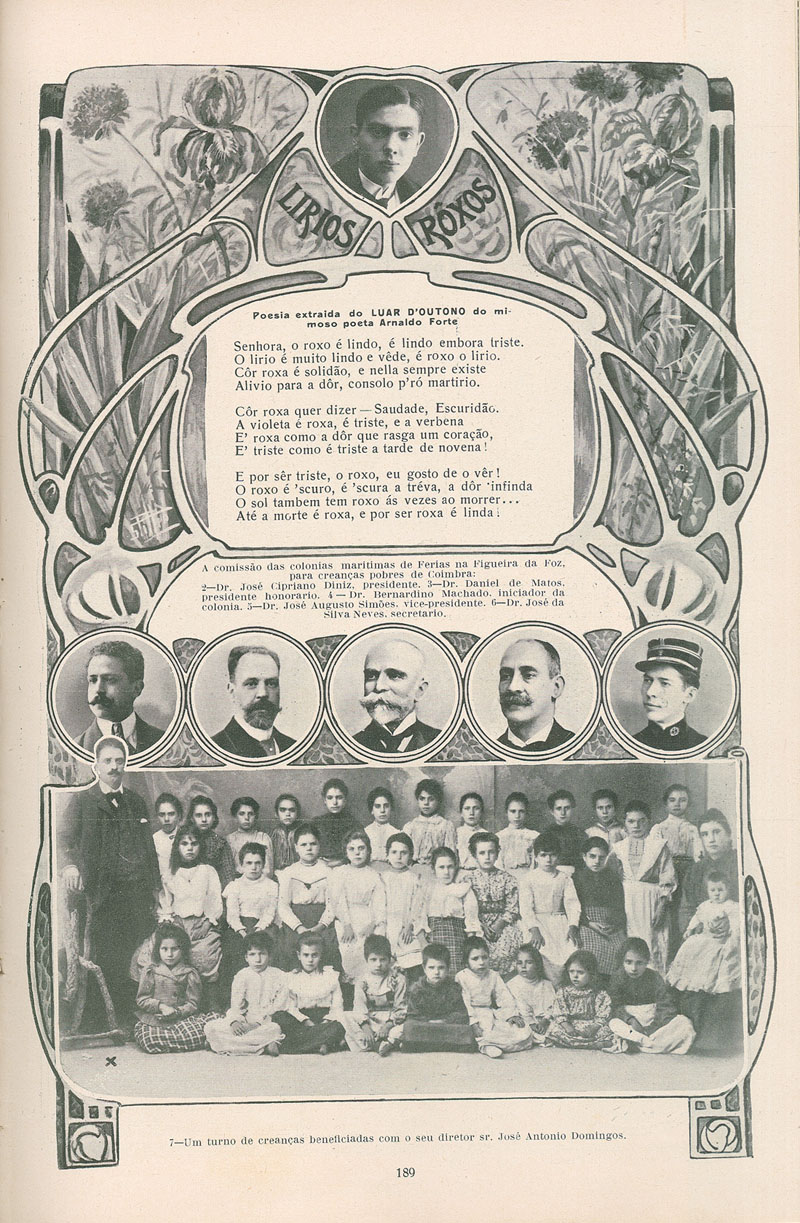 LIRIOS RÔXOS
Poesia extraida do LUAR D'OUTONO do mi-
moso poeta Arnaldo Forte
Senhora, o roxo é lindo, é lindo embora triste.
O lirio é muito lindo e vêde, é roxo o lirio.
Côr roxa é solidão, e nella sempre existe
Alivio para a dôr, consolo p'ró martirio.
Côr roxa quer dizer—Saudade, Escuridão.
A violeta é roxa, é triste, e a verbena
E' roxa como a dôr que rasga um coração,
E' triste como é triste a tarde de novena!
E por sêr triste, o roxo, eu gosto de o vêr!
O roxo é 'scuro, é 'scura a tréva, a dôr 'infinda
O sol tambem tem roxo ás vezes ao morrer...
Até a morte é roxa, e por ser roxa é linda!
A comissão das colonias marítimas de Ferias na Figueira da Foz,
para creanças pobres de Coimbra:
2—Dr. José Cipriano Diniz, presidente. 3—Dr. Daniel de Matos,
presidente honorario. 4—Dr. Bernardino Machado, iniciador da
colonia. 5—Dr. José Augusto Simões, vice-presidente. 6—Dr. José da
Silva Neves, secretario.
7—Um turno de creanças beneficiadas com o seu diretor sr. José Antonio Domingos.
189